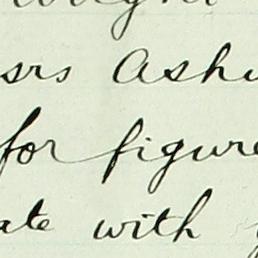 srs Ashu
for figure
ate with